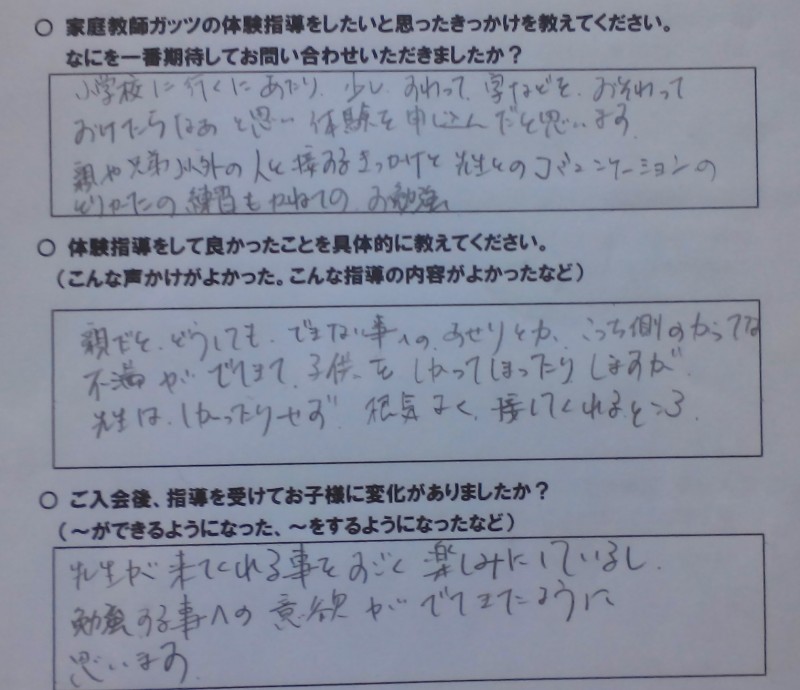 ○ 家庭教師ガッツの体験指導をしたいと思ったきっかけを教えてください。
なにを一番期待してお問い合わせいただきましたか？
小学校に行くにあたり、少し、すわって、字などを、おそわって
おけたらなあと思い体験を申し込んだと思います
親や兄弟以外の人と接するきっかけと先生とのコミュニケーションの
とりかたの練習もかねてのお勉強
○ 体験指導をして良かったことを具体的に教えてください。
（こんな声かけがよかった。こんな指導の内容がよかったなど）
親だと、どうしても、できない事への、あせりとか、こっち側のかってな
不満がでてきて、子供、をしかってしまったりしますが
先生は、しかったりせず、根気よく、接してくれるところ
○ ご入会後、指導を受けてお子様に変化がありましたか？
（～ができるようになった、～をするようになったなど）
先生が来てくれる事をすごく楽しみにしているし、
勉強する事への意欲がでてきたように
思います